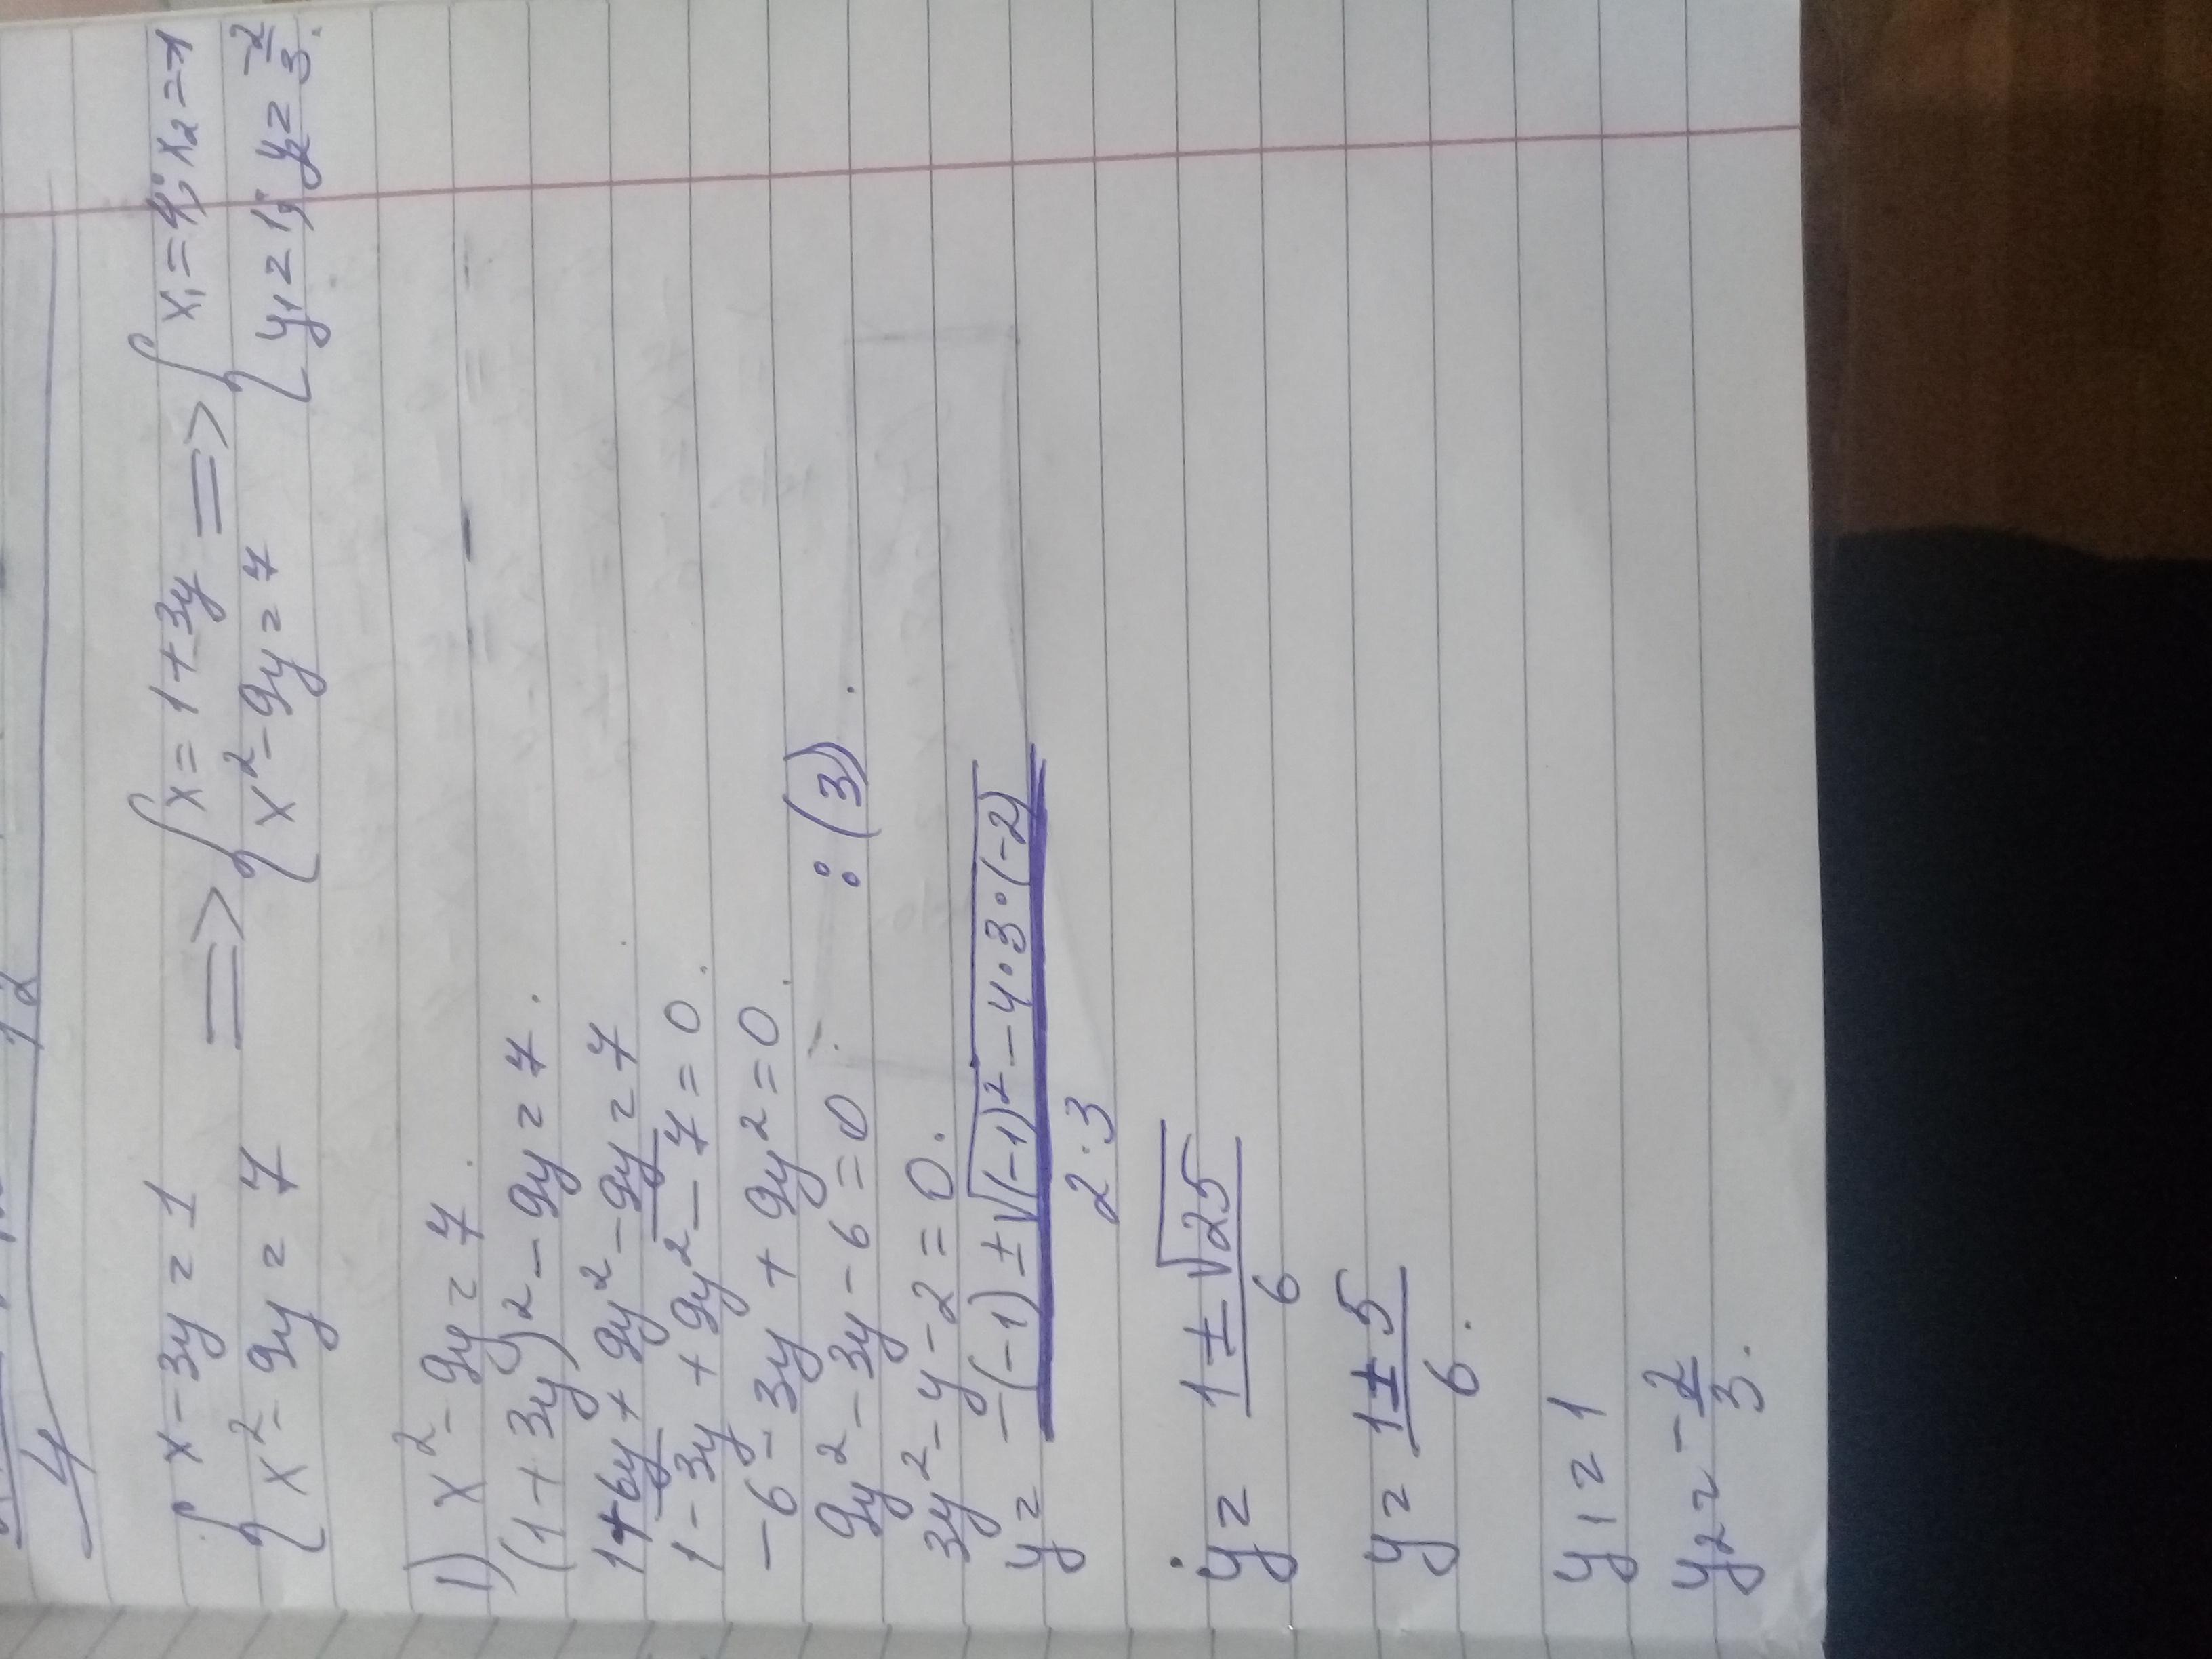 4
{ x - 3y = 1 => { x = 1 + 3y => { x₁ = 4; x₂ = -1
{ x² - 9y = 7 { x² - 9y = 7 { y₁ = 1; y₂ = -2/3.
1) x² - 9y = 7.
(1 + 3y)² - 9y = 7.
1 + 6y + 9y² - 9y = 7
1 - 3y + 9y² - 7 = 0.
-6 - 3y + 9y² = 0.
9y² - 3y - 6 = 0 : (3)
3y² - y - 2 = 0.
y = (-(-1) ± √((-1)² - 4·3·(-2))) / 2·3
y = (1 ± √25) / 6
y = (1 ± 5) / 6.
y₁ = 1
y₂ = -2/3.